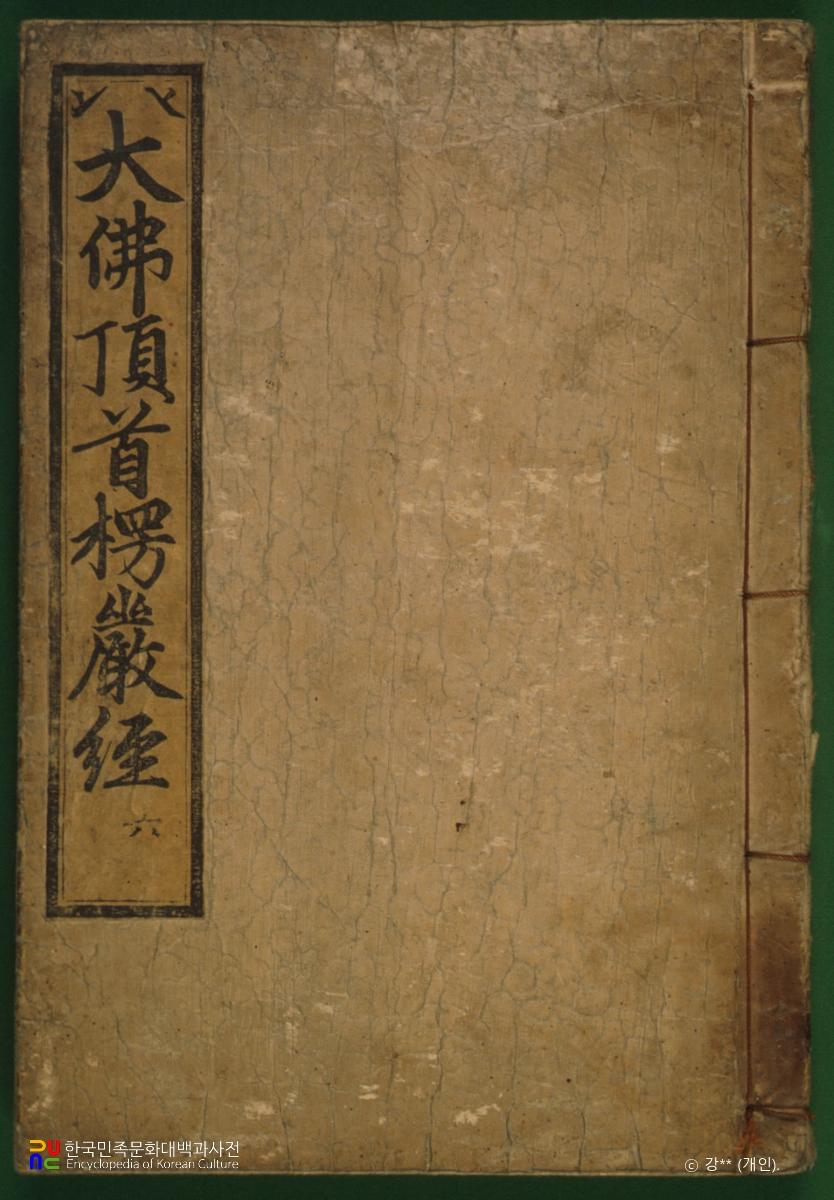 大佛頂首楞嚴經
六
한국민족문화대백과사전
Encyclopedia of Korean Culture
ⓒ 강** (개인).